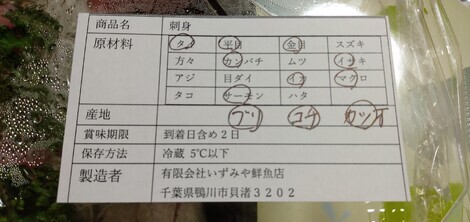 商品名 刺身
原材料 タイ 平目 金目 スズキ
方々 カンパチ ムツ イサキ
アジ 目ダイ イカ マグロ
タコ サーモン ハタ
産地 ブリ コチ カツオ
賞味期限 到着日含め2日
保存方法 冷蔵 5℃以下
製造者 有限会社いずみや鮮魚店
千葉県鴨川市貝渚3202